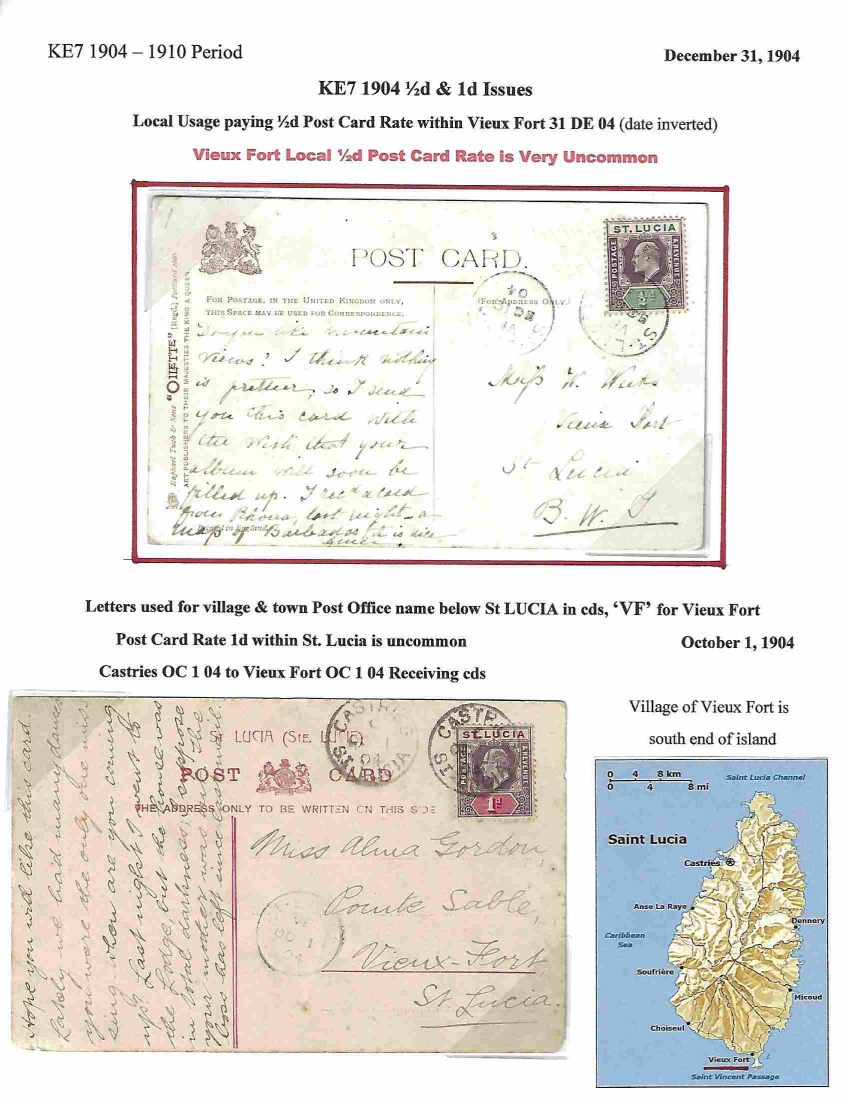 KE7 1904 – 1910 Period
December 31, 1904
KE7 1904 ½d & 1d Issues
Local Usage paying ½d Post Card Rate within Vieux Fort 31 DE 04 (date inverted)
Vieux Fort Local ½d Post Card Rate is Very Uncommon
POST CARD.
FOR POSTAGE, IN THE UNITED KINGDOM ONLY,
THIS SPACE MAY BE USED FOR CORRESPONDENCE.
(FOR ADDRESS ONLY.)
ST. LUCIA
POSTAGE
& REVENUE
½d
Raphael Tuck & Sons "OILETTE" [Regd.] Postcard
ART PUBLISHERS TO THEIR MAJESTIES THE KING & QUEEN.
Do you like mountain
views? I think nothing
is prettier, so I send
you this card with
the wish that your
album will soon be
filled up. I rec'd a card
from Rhona, last night - a
map of Barbados it is nice
Printed in England
W. Wicks
Vieux Fort
St Lucia
B. W. I
Letters used for village & town Post Office name below St LUCIA in cds, ‘VF’ for Vieux Fort
Post Card Rate 1d within St. Lucia is uncommon
October 1, 1904
Castries OC 1 04 to Vieux Fort OC 1 04 Receiving cds
ST LUCIA (STE. LUCIE)
POST CARD
THE ADDRESS ONLY TO BE WRITTEN ON THIS SIDE
CASTRIES
ST. LUCIA
OC 1
04
CASTR
ST
ST. LUCIA
POSTAGE
& REVENUE
1d
Miss Alma Gordon,
Pointe Sable,
Vieux-Fort
St. Lucia.
OC 1
04
Hope you will like this card.
Lately we had many dances
you were the only one miss
ing. When are you coming
up? Last night I went to
the Lodge but the house was
in total darkness, I suppose
your mother was out. The
Coss has left since last mail.
Village of Vieux Fort is
south end of island
0 4 8 km
0 4 8 mi
Saint Lucia Channel
Saint Lucia
Castries
Anse La Raye
Dennery
Caribbean
Sea
Soufrière
Micoud
Choiseul
Vieux Fort
Saint Vincent Passage